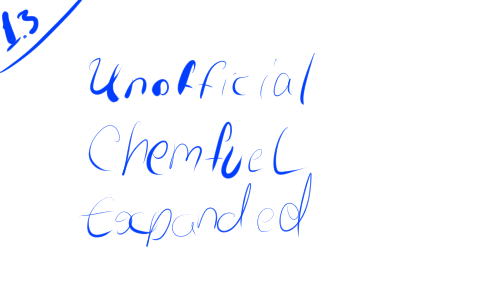 1.3
Unofficial
Chemfuel
Expanded